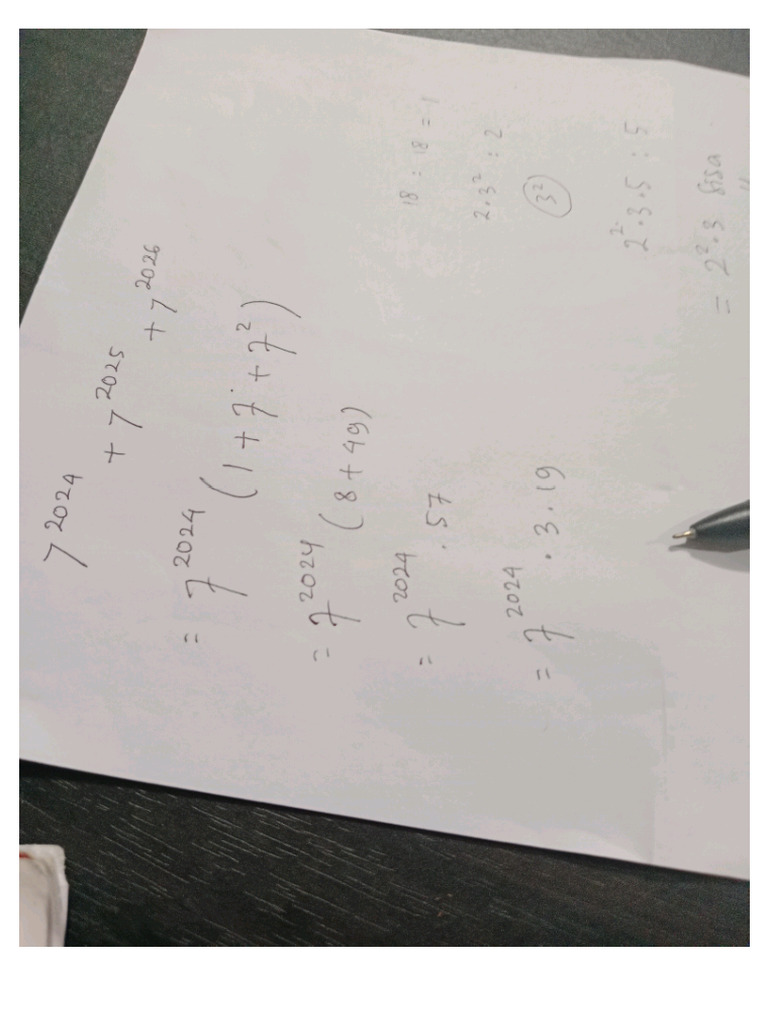 7²⁰²⁴ + 7²⁰²⁵ + 7²⁰²⁶
= 7²⁰²⁴ (1 + 7 + 7²)
= 7²⁰²⁴ (8 + 49)
= 7²⁰²⁴ . 57
= 7²⁰²⁴ . 3 . 19
18 : 18 = 1
2 . 3² : 2
3²
2² . 3 . 5 : 5
= 2² . 3 sisa